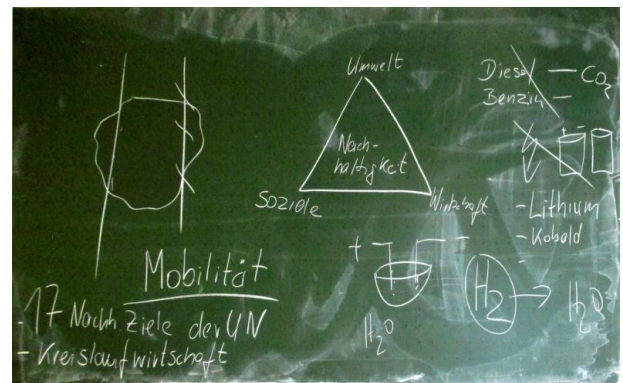 Umwelt
Nach-
haltigkeit
Soziele
Wirtschaft
Diesel — CO2
Benzin —
+ -
- Lithium
- Kobold
-
Mobilität
- 17 Nachh Ziele der UN
- Kreislaufwirtschaft
+ -
H2O
H2 → H2O